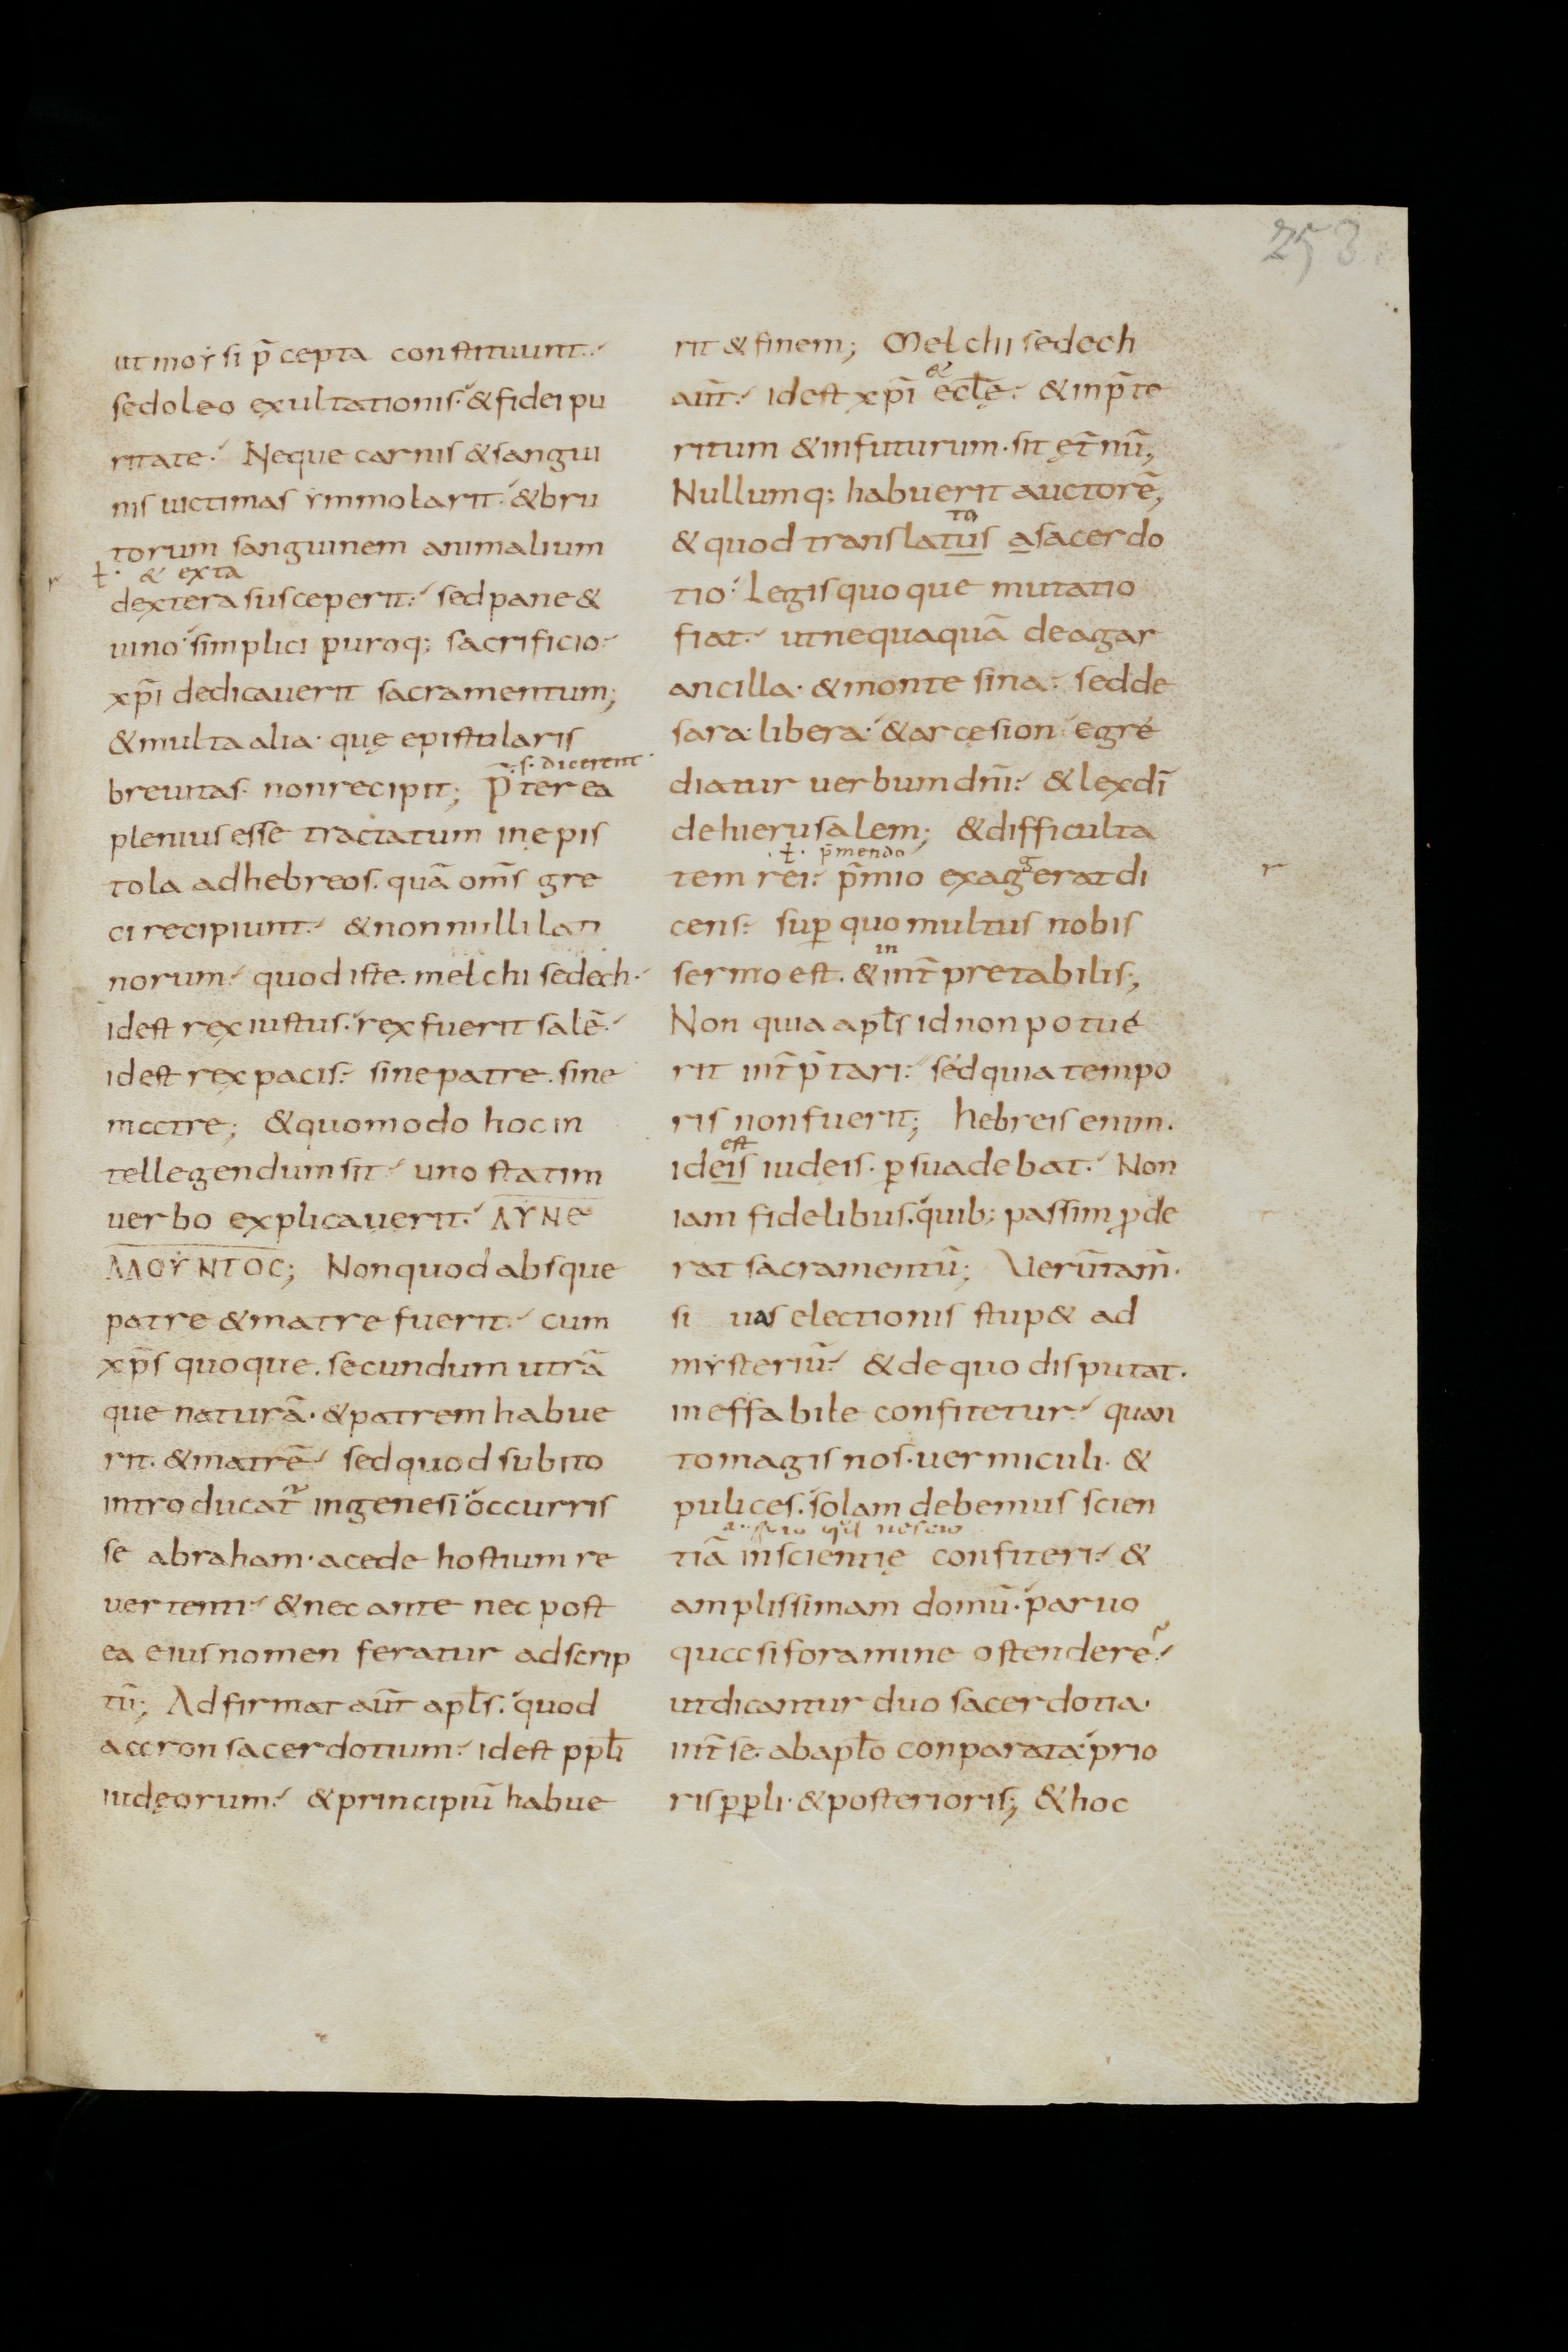 253
ut moysi p̄cepta constituunt.
sed oleo exultationis. & fidei pu
ritate. Neque carnis & sangui
nis uictimas ymmolarit. & bru
torum sanguinem animalium
ɫ. & exta
dextera susceperit. sed pane &
uino simplici puroq; sacrificio.
xp̄i dedicauerit sacramentum;
& multa alia. quę epistularis
s. dicerent
breuitas. non recipit; P̄terea
plenius esse tractatum in epis
tola ad hebreos. quā om̄s gre
ci recipiunt. & non nulli lati
norum. quod iste. melchisedech.
id est rex iustus. rex fuerit salē.
id est rex pacis. sine patre. sine
matre; & quomodo hoc in
tellegendum sit. uno statim
uerbo explicauerit. ΑΥΝΕ
ΑΛΟΥΝΤΟC; Non quod absque
patre & matre fuerit. cum
xp̄s quoque. secundum utrā
que naturā. & patrem habue
rit. & matrē. sed quod subito
introducat̄ in genesi occurris
se abraham. a cede hostium re
uertenti. & nec ante nec post
ea eius nomen feratur adscrip
tū; Adfirmat aūt apl̄s. quod
aaron sacerdotium. id est ppl̄i
iudęorum. & principiū habue
rit & finem; Melchisedech
&
aūt. id est xp̄i ecl̄ę. & in p̄te
ritum & in futurum. sit ęt̄nū,
Nullumq; habuerit auctorē,
to
& quod translatus a sacerdo
tio. Legis quoque mutatio
fiat. ut nequaquā de agar
ancilla. & monte sina. sed de
sara. libera. & arce sion egre
diatur uerbum dn̄i. & lex dī
de hierusalem; & difficulta
ɫ. p̄mendo
tem rei. p̄mio exaggerat di
cens. sup quo multus nobis
in
sermo est. & int̄pretabilis;
Non quia apl̄s id non potue
rit int̄p̄tari. sed quia tempo
ris non fuerit; hebreis enim.
est
id eis iudeis. psuadebat. Non
iam fidelibus. quib; passim pde
rat sacramentū; Verūtam̄.
si uas electionis stup& ad
mysteriū. & de quo disputat.
ineffabile confitetur. quan
to magis nos. uermiculi. &
pulices. solam debemus scien
nescio
tiā inscientię confiteri. &
amplissimam domū. paruo
quasi foramine ostendere.
ut dicantur duo sacerdotia.
int̄ se. ab apl̄o conparata prio
ris ppli. & posterioris; & hoc
r
r